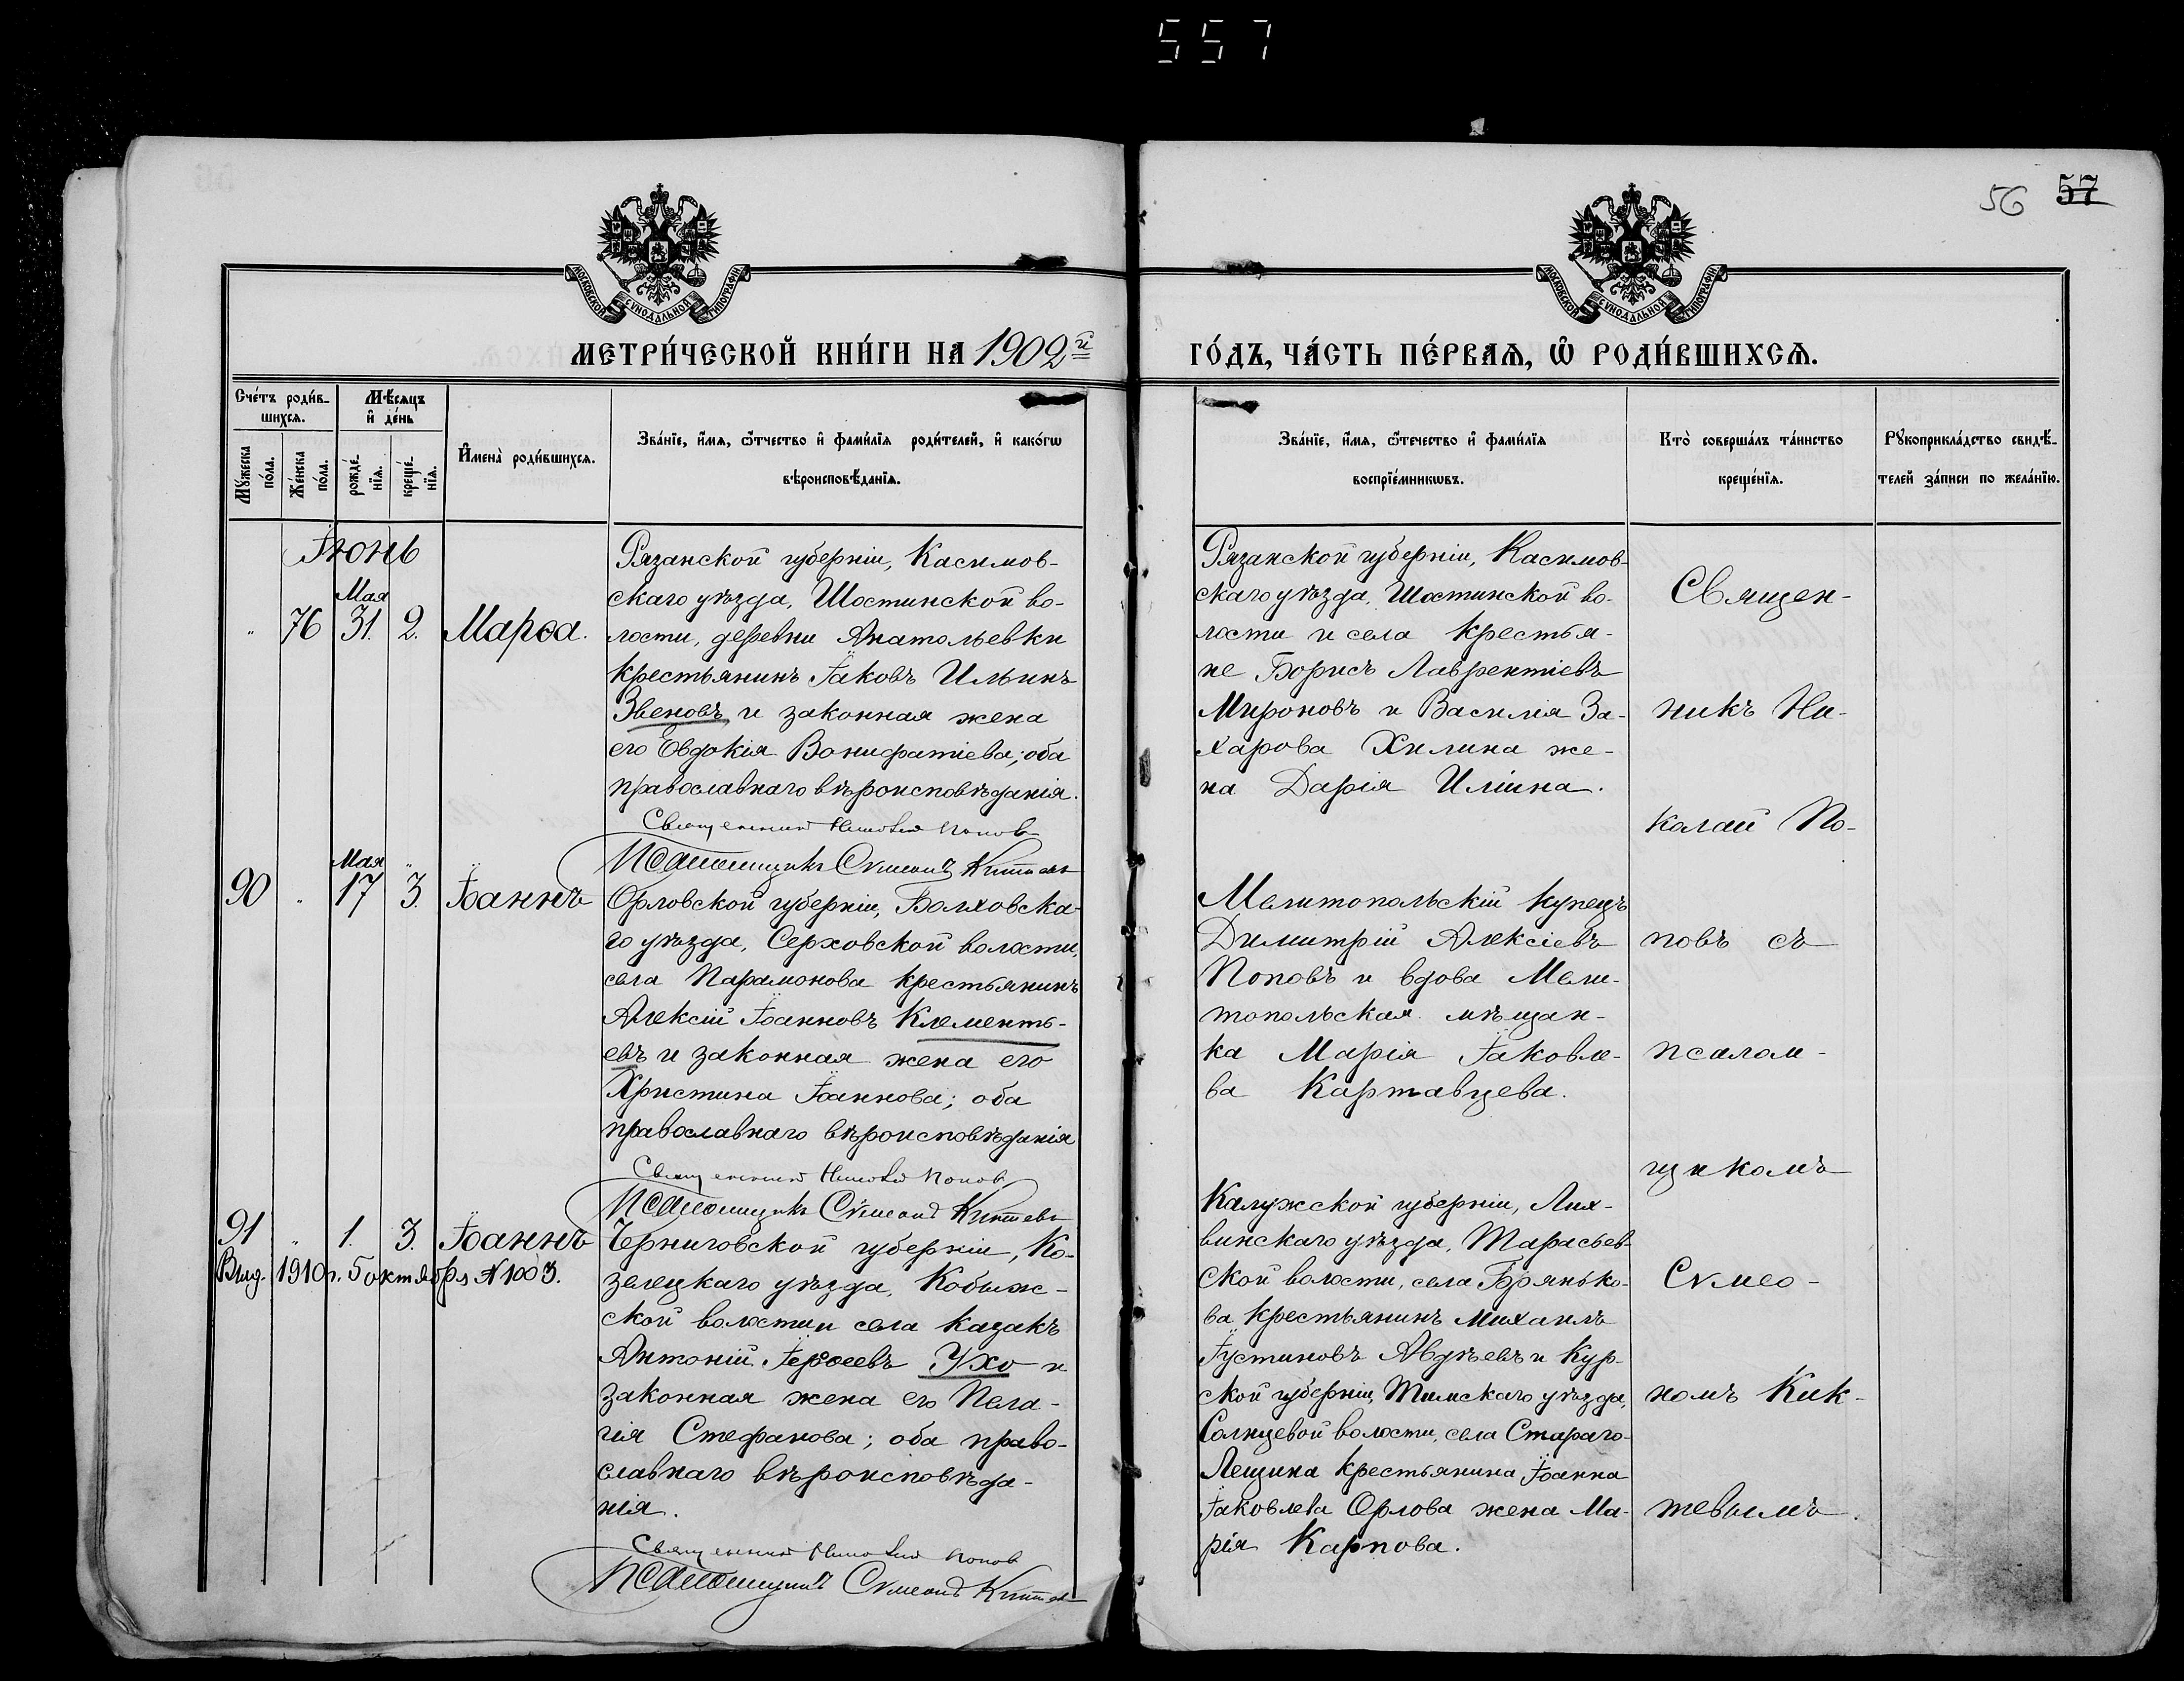 557
56 57
МОСКОВСКОЙ СѴНОДАЛЬНОЙ ТИПОГРАФІИ
МОСКОВСКОЙ СѴНОДАЛЬНОЙ ТИПОГРАФІИ
МЕТРИ́ЧЕСКОЙ КНИ́ГИ НА 1902й
ГО́ДЪ, ЧА́СТЬ ПЕ́РВАѦ, Ѡ҆ РОДИ́ВШИХСѦ.
Сче́тъ роди́в-
шихсѧ.
Мꙋ́жеска
по́ла.
Же́нска
по́ла.
Мѣ́сѧцъ
и҆ де́нь
рожде́-
нїѧ.
креще́-
нїѧ.
И҆мена̀ роди́вшихсѧ.
Зва́нїе, и҆́мѧ, ѻ҆́тчество и҆ фами́лїѧ роди́телей, и҆ како́гѡ
вѣроисповѣ́данїѧ.
Зва́нїе, и҆́мѧ, ѻ҆те́чество и҆ фами́лїѧ
воспрїе́мникѡвъ.
Кто̀ соверша́лъ та́инство
креще́нїѧ.
Рꙋкоприкла́дство свидѣ́-
телей за́писи по жела́нїю.
Іюнь
Мая
" 76 31. 2. Марѳа.
Рязанской губерніи, Касимов-
скаго уѣзда, Шостинской во-
лости, деревни Анатольевки
крестьянинъ Іаковъ Ильинъ
Звеновъ и законная жена
его Евдокія Вонифатіева; оба
православнаго вѣроисповѣданія.
Священникъ Николай Попов
Псаломщикъ Сѵмеонъ Киктев
Рязанской губерніи, Касимов-
скаго уѣзда, Шостинской во-
лости и села крестья-
не Борисъ Лаврентіевъ
Мироновъ и Василія За-
харова Хилина же-
на Дарія Иліина.
Мая
90 " 17 3. Іоаннъ
Орловской губерніи, Болховска-
го уѣзда, Серховской волости,
села Парамонова крестьянинъ
Алексій Іоанновъ Клементь-
евъ и законная жена его
Христина Іоаннова; оба
православнаго вѣроисповѣданія
Священникъ Николай Попов
Псаломщикъ Сѵмеонъ Киктев
Мелитопольскій купецъ
Димитрій Алексіевъ
Поповъ и вдова Мели-
топольская мѣщан-
ка Марія Іаковле-
ва Картавцева.
91 " 1. 3. Іоаннъ
Выд. 1910г. 5 октября № 1003.
Черниговской губерніи, Ко-
зелецкаго уѣзда, Кобыж-
ской волости и села казакъ
Антоній Іероѳеевъ Ухо и
законная жена его Пела-
гія Стефанова; оба право-
славнаго вѣроисповѣда-
нія.
Священникъ Николай Попов
Псаломщикъ Сѵмеонъ Киктев
Калужской губерніи, Лих-
винскаго уѣзда, Тарасьев-
ской волости, села Брянько-
ва крестьянинъ Михаилъ
Іустиновъ Авдѣевъ и Кур-
ской губерніи, Тимскаго уѣзда,
Солнцевой волости, села Стараго-
Лещина крестьянина Іоанна
Іаковлева Орлова жена Ма-
рія Карпова.
Священ-
никъ Ни-
колай По-
повъ съ
псалом-
щикомъ
Сѵмео-
номъ Кик-
тевымъ.